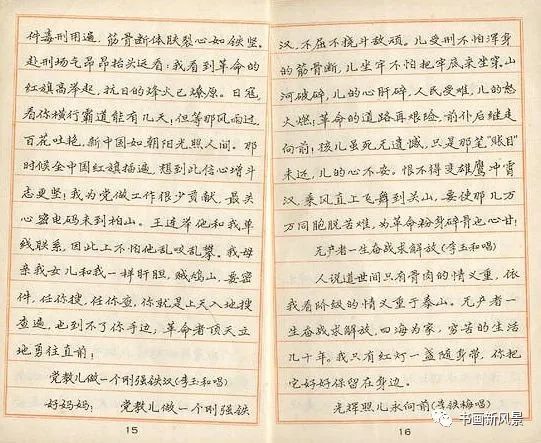 件毒刑用遍，筋骨断体肤裂心如铁坚。
赴刑场气昂昂抬头远看：我看到革命的
红旗高举起，抗日的烽火已燎原。日寇，
看你横行霸道能有几天！但等那风雨过，
百花吐艳，新中国如朝阳光照人间。那
时候全中国红旗插遍，想到此信心增斗
志更坚！我为党做工作很少贡献，最关
心密电码未到柏山。王连举他和我单
线联系，因此上不怕他乱咬乱攀。我母
亲我女儿和我一样肝胆，贼鸠山，要密
件，任你搜，任你查，你就是上天入地搜
查遍，也到不了你手边，革命者顶天立
地勇往直前！
党教儿做一个刚强铁汉(李玉和唱)
好妈妈：党教儿做一个刚强铁
15
汉，不屈不挠斗敌顽。儿受刑不怕浑身
的筋骨断，儿坐牢不怕把牢底来坐穿。山
河破碎，儿的心肝碎，人民受难，儿的怒
火燃！革命的道路再艰险，前仆后继走
向前！孩儿虽死无遗憾，只是那笔“账目”
未还，儿的心不安。恨不得变雄鹰冲霄
汉，乘风直上飞舞到关山，要使那几万
万同胞脱苦难，为革命粉身碎骨也心甘！
无产者一生奋战求解放(李玉和唱)
人说道世间只有骨肉的情义重，依
我看阶级的情义重于泰山。无产者一
生奋战求解放，四海为家，穷苦的生活
几十年。我只有红灯一盏随身带，你把
它好好保留在身边。
光辉照儿永向前(李铁梅唱)
16
书画新风景